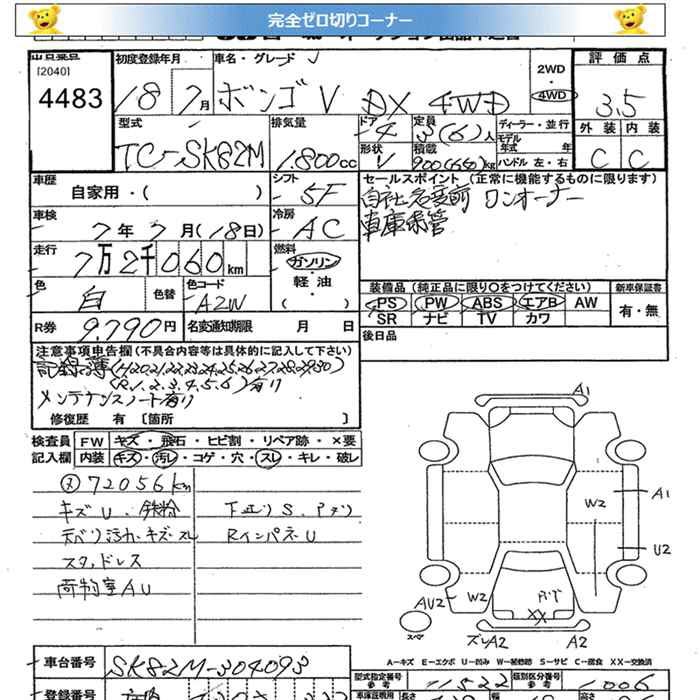 完全ゼロ切りコーナー
[2040]
4483
初度登録年月
車名・グレード
18 7月
ボンゴV DX 4WD
2WD
・
4WD
評価点
3.5
外装 内装
C C
型式
TC-SK82M
排気量
1.800cc
ドア
4
定員
3(6)人
ディーラー・並行
モデル年式 年
形状
V
積載
kg
ハンドル 左・右
車歴
自家用・( )
シフト
5F
セールスポイント (正常に機能するものに限ります)
自社名変前 ワンオーナー
車庫保管
車検
7年7月(18日)
冷房
AC
走行
7万2千060km
燃料
ガソリン
・
軽油
・
( )
色
白
色替
色コード
A2W
装備品 (純正品に限り○をつけてください)
新車保証書
PS PW ABS エアB AW
SR ナビ TV カワ
有・無
R券 9.790円
名変通知期限 月 日
後日品
注意事項申告欄(不具合内容等は具体的に記入して下さい)
記録簿(H20,21,22,23,24,25,26,27,28,29,30)
(R1,2,3,4,5,6)有り
メンテナンスノート有り
修復歴 有 〔箇所 〕
検査員
記入欄
FW キズ・飛石・ヒビ割・リペア跡・×要
内装 キズ・汚レ・コゲ・穴・スレ・キレ・破レ
72056km
キズU. 鉄粉
下廻りS.アタリ
天ベリ汚れ.キズ.スレ
RインパネU
スタッドレス
荷物室AU
A1
W2
A1
U2
AU2
W2
スペア
XX
ズレA2
A2
A-キズ E-エクボ U-凹み W-補修跡 S-サビ C-腐食 XX-交換済
車台番号
SK82M-304093
型式指定番号
参考
11522
類別区分番号
参考
1006
登録番号